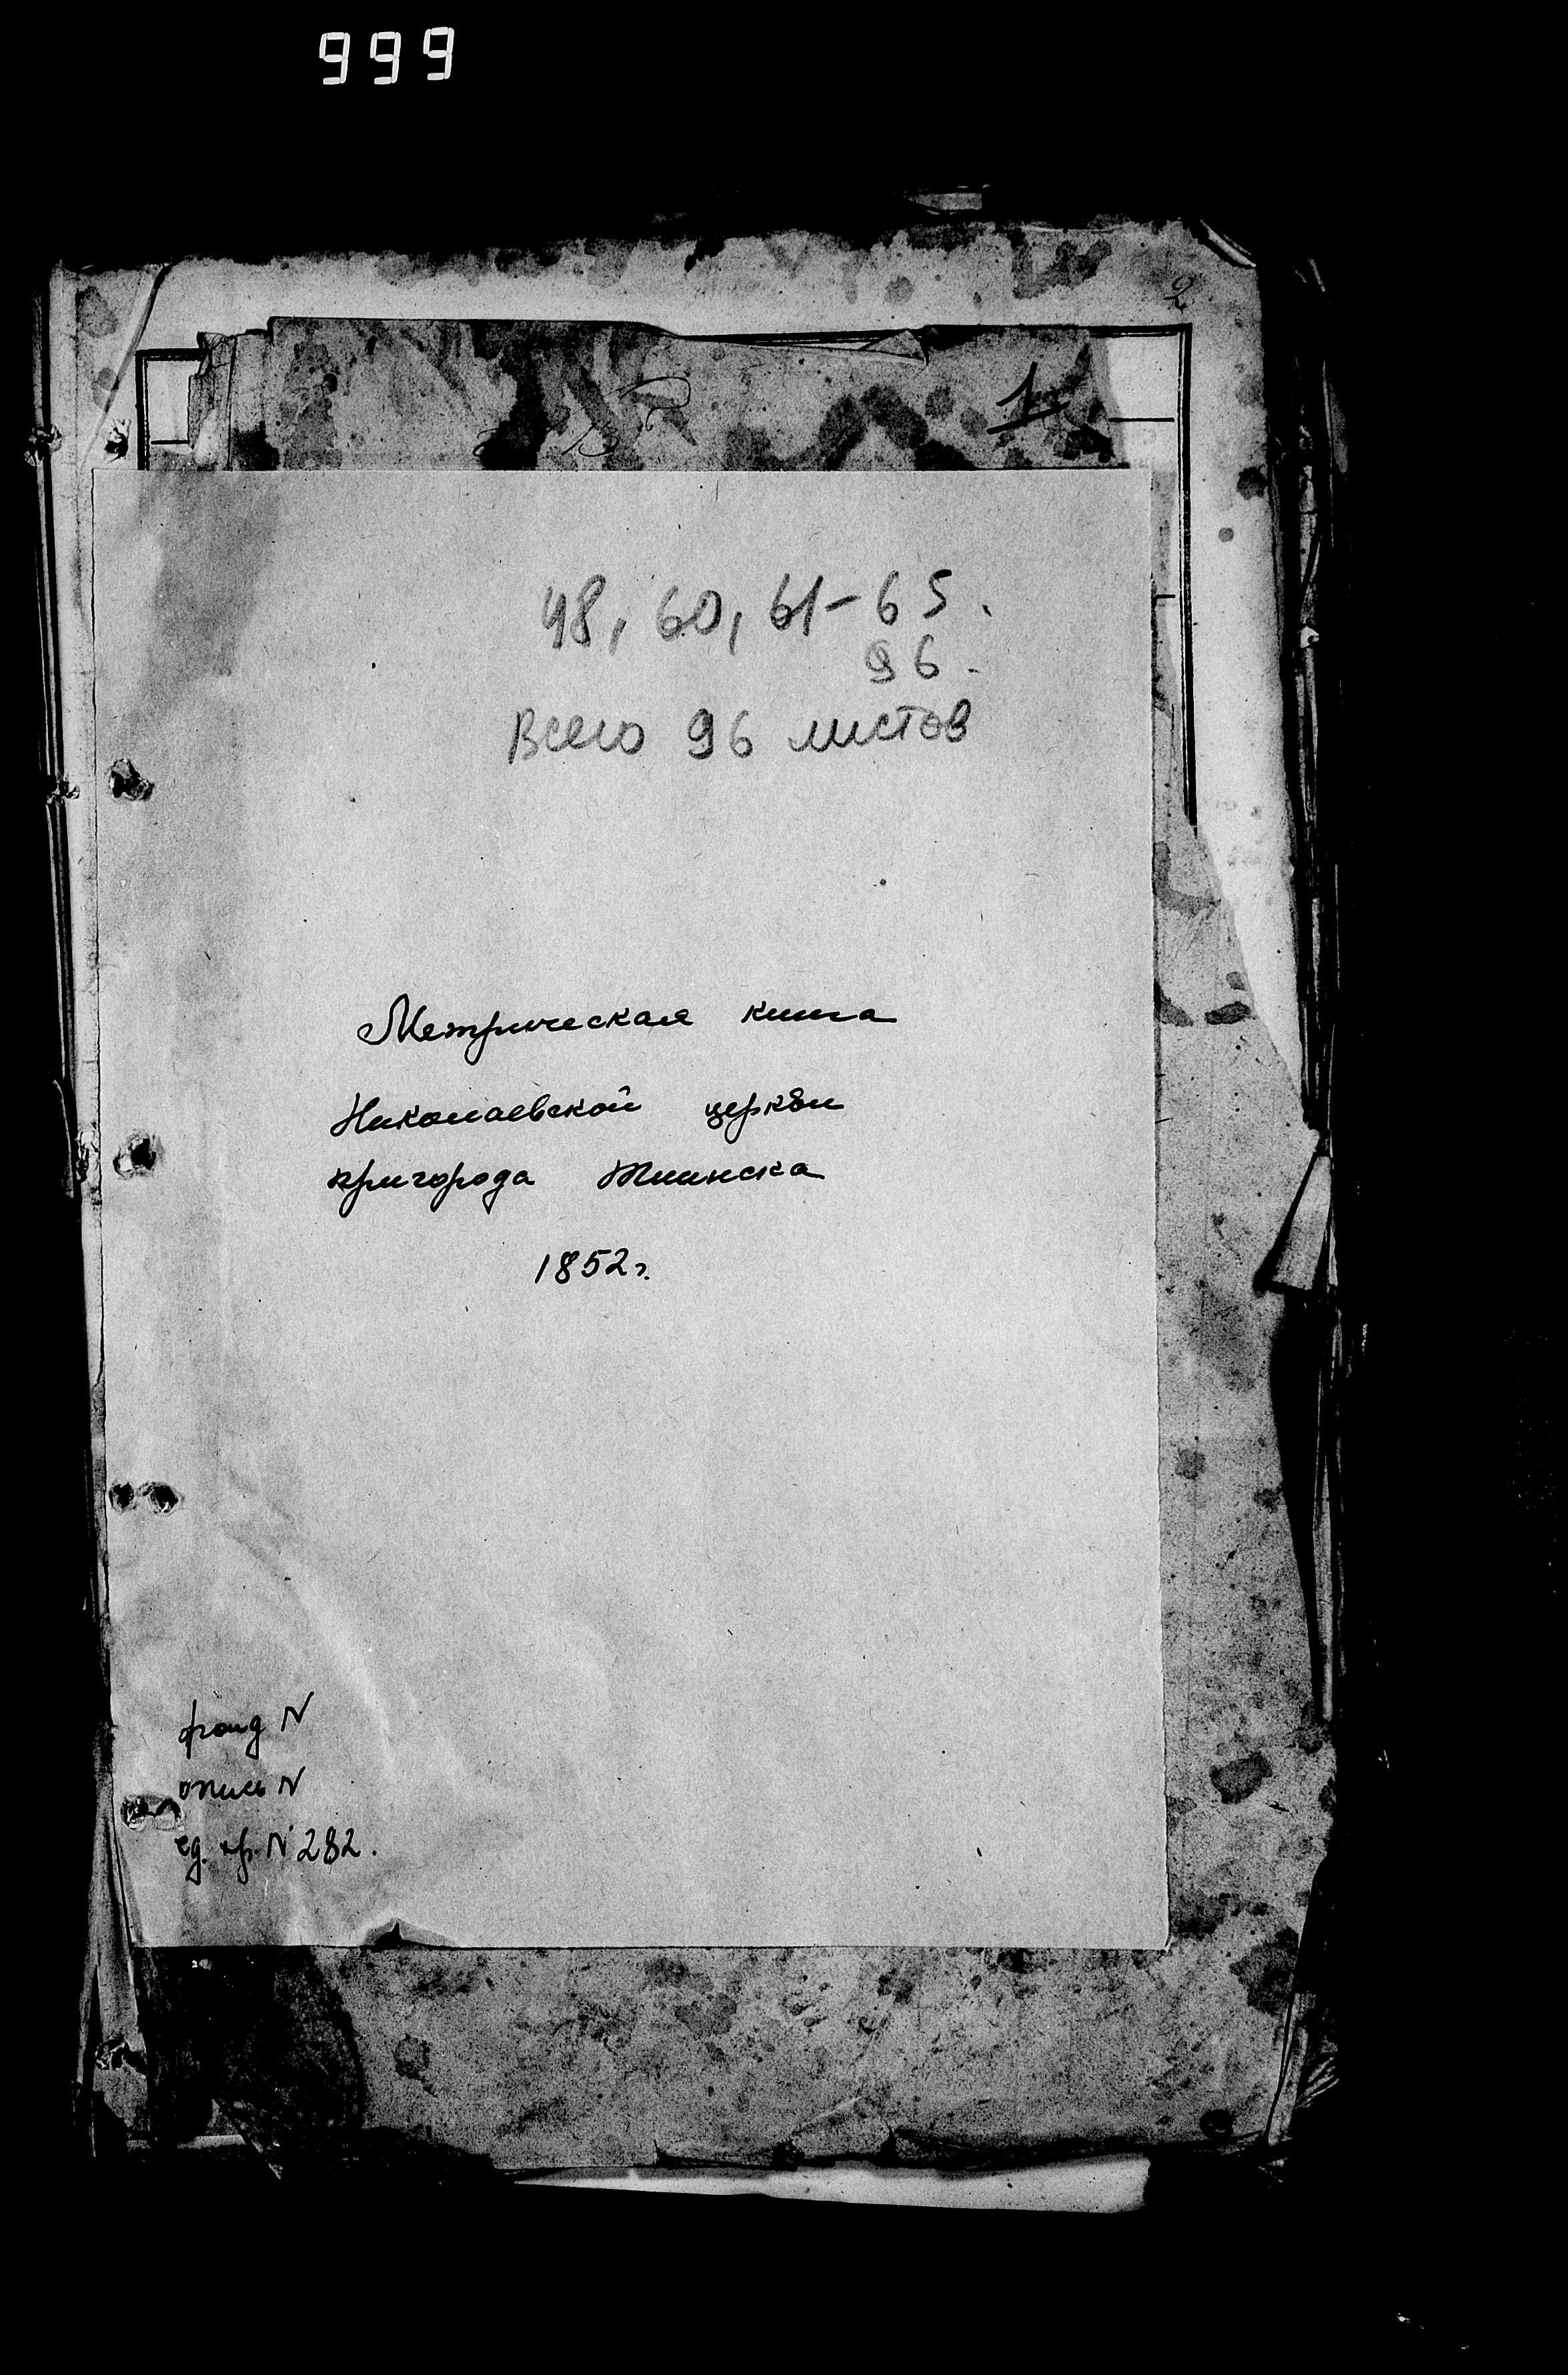 999
2
1
48, 60, 61-65.
96.
Всего 96 листов
Метрическая книга
Николаевской церкви
пригорода Тиинска
1852г.
фонд N
опись N
ед. хр. N 282.